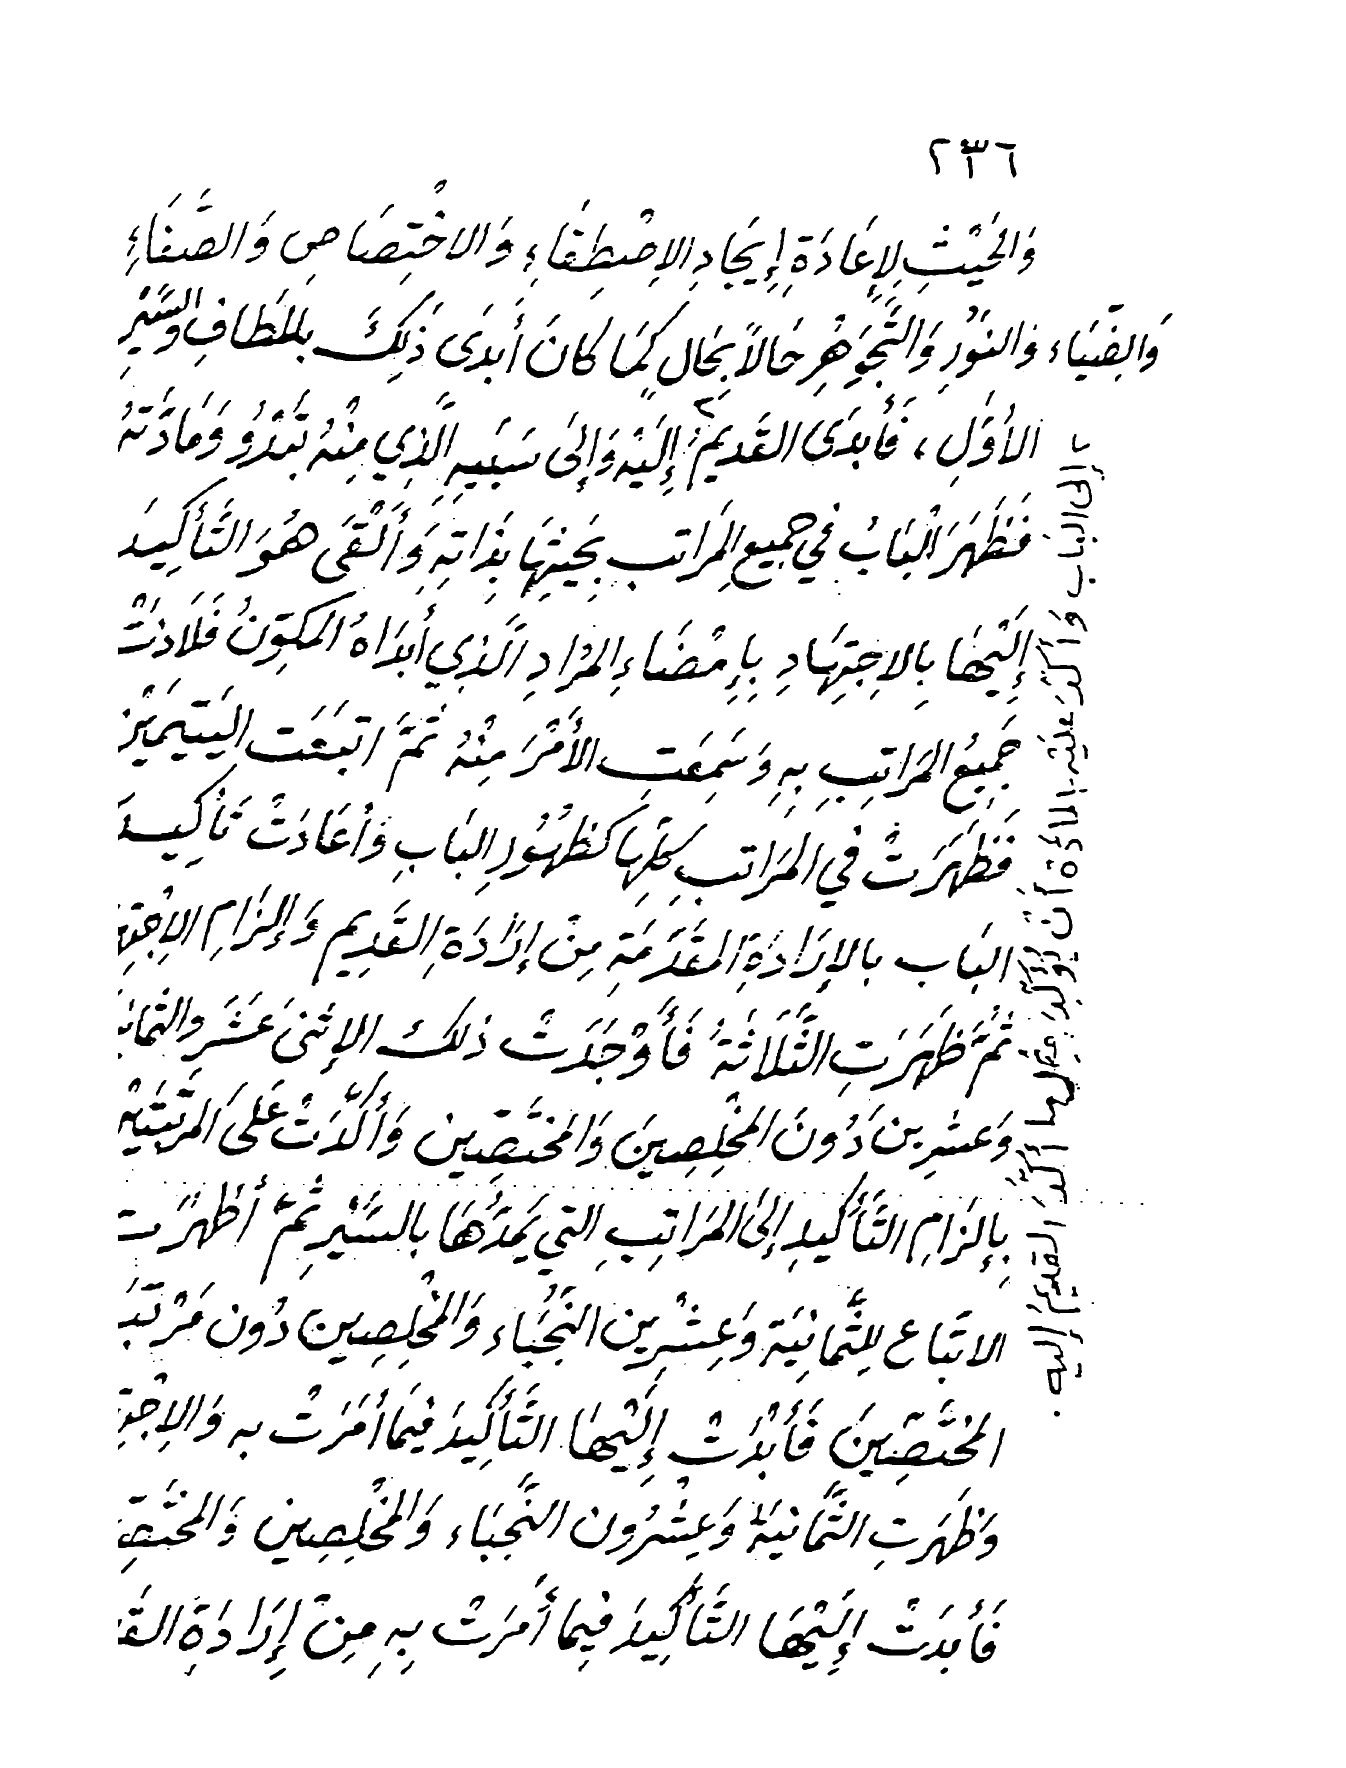 ٢٣٦
وَالحَيْثِ لِإِعَادَةِ إِيجَادِ الاِصْطِفَاءِ وَالاخْتِصَاصِ وَالصَّفَاءِ
وَالضِّيَاء وَالنُّوْرِ وَالتَّجَوْهُرِ حَالاً بِحَالٍ كَمَا كَانَ أَبدَى ذَلِكَ بِالمَطَافِ وَالسَّيْرِ
الأَوَّلِ، فَأَبدَى القَديمُ إِلَيْهِ وَإِلَى سَبَبِهِ الَّذِي مِنْهُ تَبْدُو وَمَادَّتَهُ
فَظَهَرَ الْبَابُ في جميعِ المَرَاتب بِحَيْثِهَا بِذَاتِهِ وَأَلْقَى هُوَ التَّأكِيدَ
إِلَيْهَا بِالاِجتِهَادِ بِإِمْضَاءِ المُرَادِ الَّذِي أَبدَاهُ المكَوِّنُ فَلَاذَتْ
جَمِيعُ المَرَاتِبِ بِهِ وَسَمِعَتِ الأَمْرَ مِنْهُ ثُمَّ اتبَعَت اليَتيمَيْن
فَظَهَرَتْ في المَرَاتبِ كلِّهَا كَظُهُورِ البَابِ وَأعَادَتْ تَأكِيدَ
البَاب بالإِرَادَةِ المتَقَدِّمَةِ مِنْ إِرَادَةِ القَدِيمِ وَإِلزَامِ الاِجْتِهَا
ثُمَّ ظَهَرَتِ الثَّلَاثَةُ فَأَوْجَدَتْ ذلك الإثنى عَشَرَ والثمانيَ
وَعشرِينَ دُونَ المخْلِصِينَ وَالمختَصِّين وَأَكَّدَتْ عَلَى المَرْتَبَتَيْن
بِإِلزَامِ التَّأكِيدِ إِلَى المَرَاتِبِ التي يَمدُّهَا بالسَّيْرِ ثُمَّ أظهَرَت
الاتبَاع لِلثَّمانِيَة وَعِشْرِين النُّجَبَاء وَالمُخْلِصِينَ دُون مَرْتَبَة
المُختَصِّينَ فَأَبْدَتْ إِلَيْهَا التَّأكِيدَ فيمَا أمَرَتْ به وَالاِجْتِ
وَظَهَرَتِ الثَّمَانيَةُ وَعِشْرُون النُّجَبَاء وَالمُخْلِصِين وَالمختَصِّ
فَأَبدَتْ إِلَيْهَا التَّأكِيدَ فِيمَا أَمَرَتْ بِهِ مِنْ إِرَادَةِ القَد
إلى الباب وَأكَّدَ عليْه بالمادَّة أنْ يُؤَكِّدَ مِثْلَ مَا أَكَّدَ القديمُ إليه.